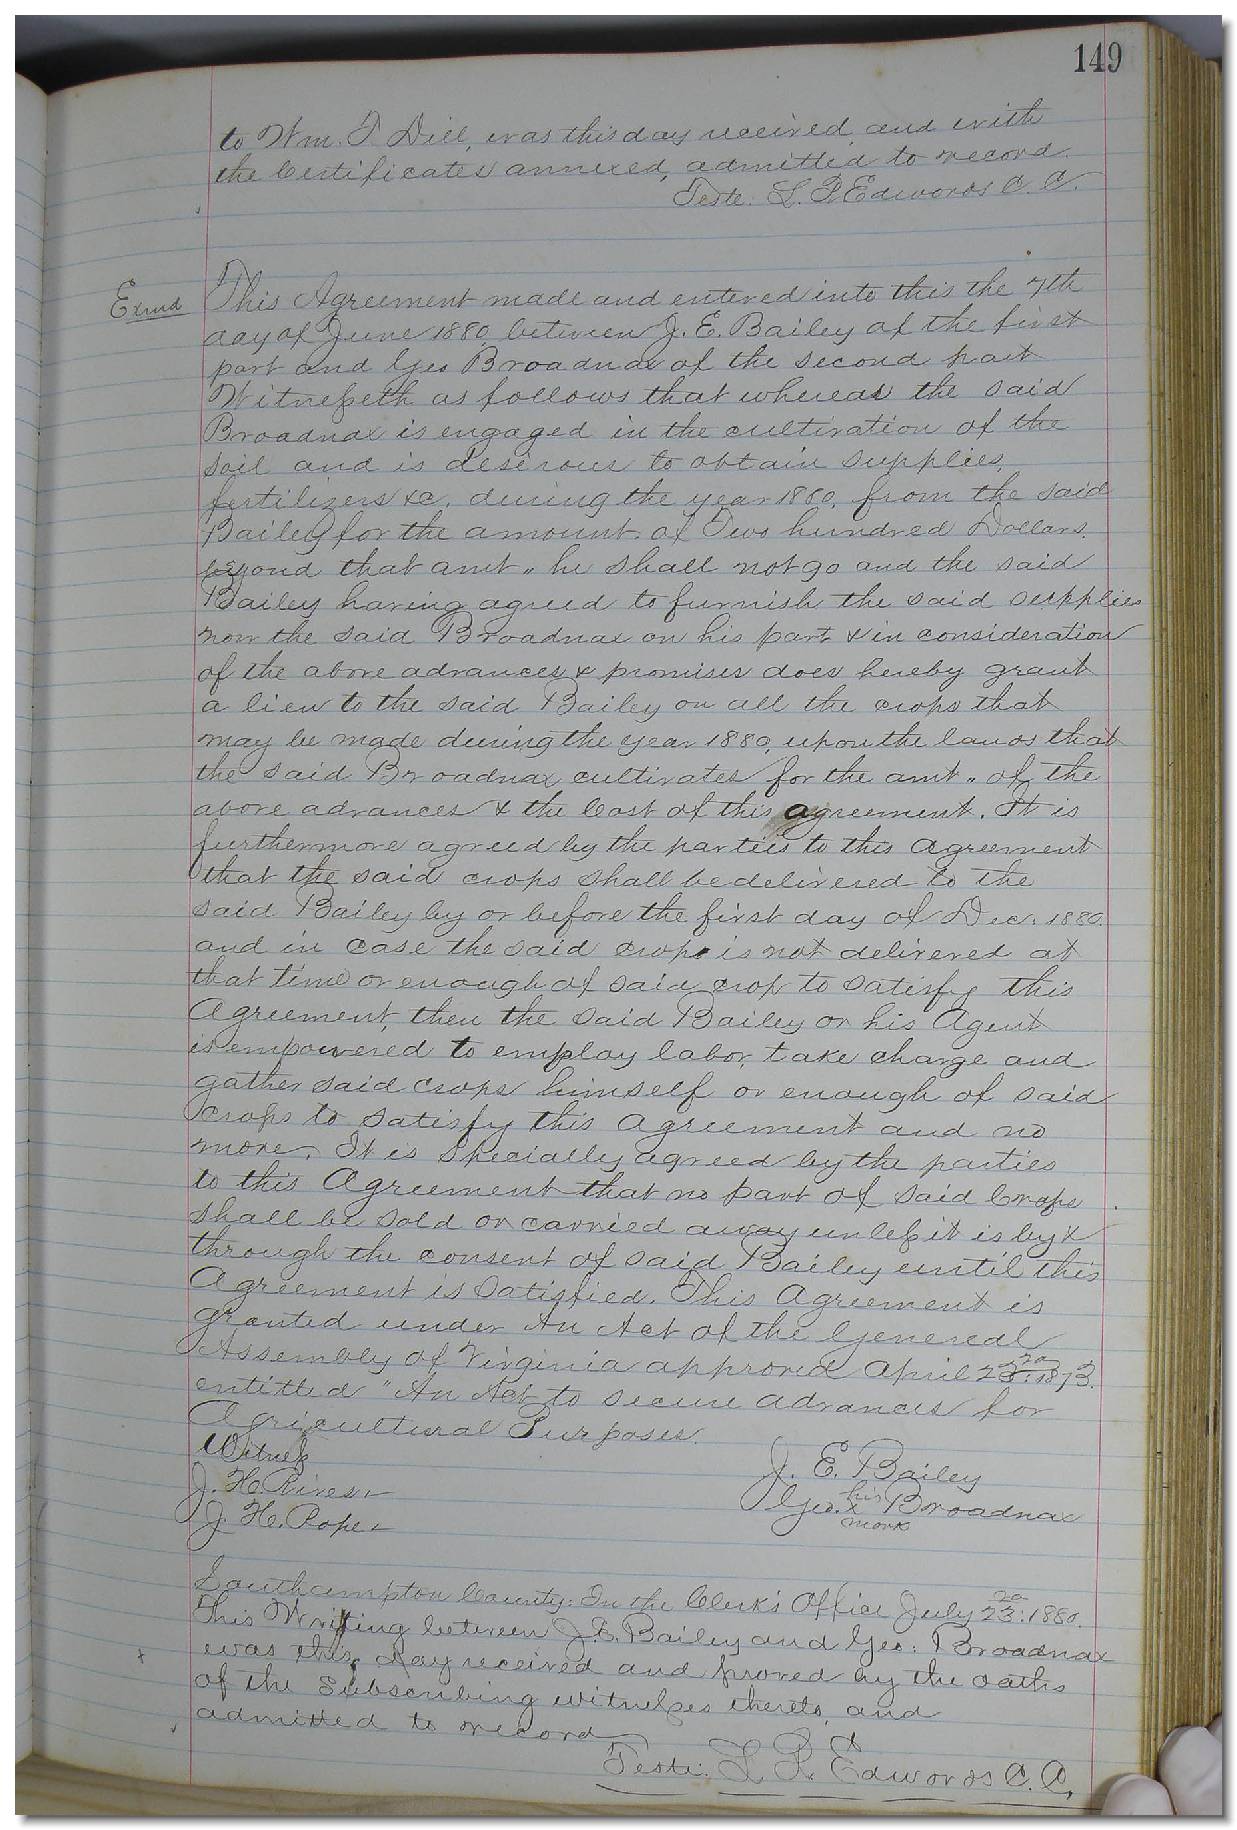 149
to Wm. T. Dill, was this day received, and with
the Certificates annexed, admitted to record.
Teste. L. R. Edwards C. C.
Exmd
This Agreement made and entered into this the 7th
day of June 1880, between J. E. Bailey of the first
part and Geo Broadnax of the second part
Witneßeth as follows that whereas the said
Broadnax is engaged in the cultivation of the
soil and is desirous to obtain supplies,
fertilizers &c, during the year 1880, from the said
Bailey for the amount of Two hundred Dollars.
beyond that amt„ he shall not go and the said
Bailey having agreed to furnish the said supplies
now the said Broadnax on his part & in consideration
of the above advances & promises does hereby grant
a lien to the said Bailey on all the crops that
may be made during the year 1880, upon the lands that
the said Broadnax cultivates for the amt„ of the
above advances & the Cost of this agreement. It is
furthermore agreed by the parties to this Agreement
that the said crops shall be delivered to the
said Bailey by or before the first day of Dec. 1880.
and in case the said crops is not delivered at
that time or enough of said crop to satisfy this
Agreement, then the said Bailey or his Agent
is empowered to employ labor, take charge and
gather said crops himself or enough of said
crops to satisfy this agreement and no
more. It is specially agreed by the parties
to this Agreement that no part of said Crops
shall be sold or carried away unleß it is by &
through the consent of said Bailey until this
Agreement is satisfied. This Agreement is
granted under An Act of the General
Assembly of Virginia approved April 23rd 1873.
entitled "An Act to secure advances for
Agricultural Purposes.
Witneß
J. E. Bailey
J. H. Rives
Geo. his x mark Broadnax
J. H. Pope
Southampton County: In the Clerk's Office July 23rd 1880.
This Writing between J. E. Bailey and Geo: Broadnax
was this day received and proved by the oaths
of the Subscribing witneßes thereto, and
admitted to record
Teste: L. R. Edwards C. C.